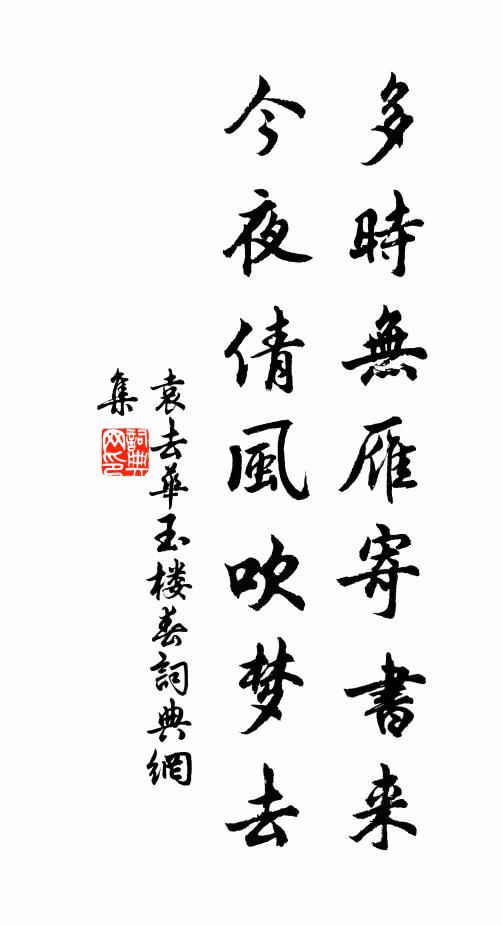 多時無雁寄書来
今夜倩風吹梦去
袁去華玉楼春詞典網
集
詞典网印